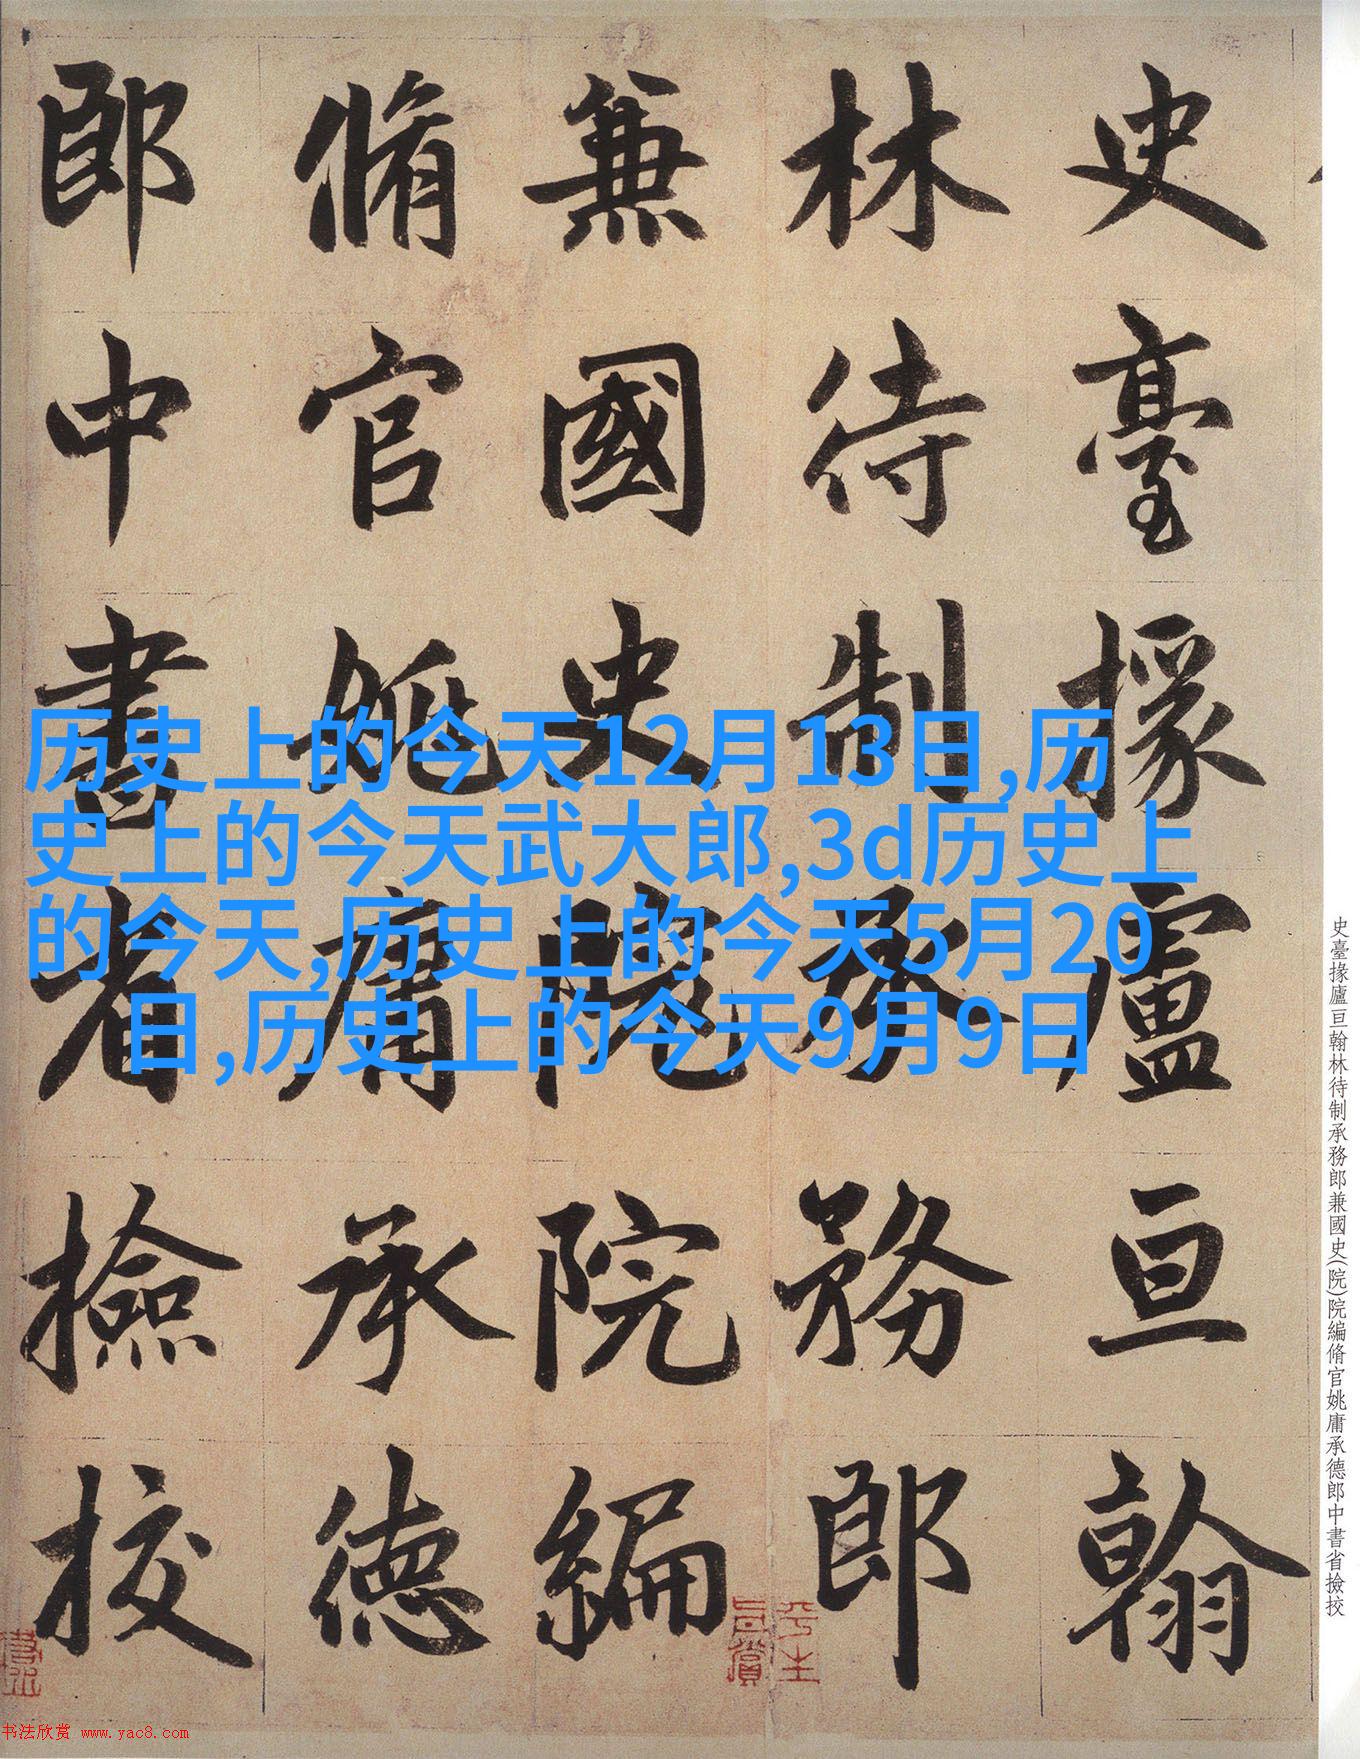 史臺掾盧亘翰
林待制承務郎
兼國史院院編
脩官姚庸承德
郎中書省撿挍
历史上的今天12月13日,历
史上的今天武大郎,3d历史上
的今天,历史上的今天5月20
日,历史上的今天9月9日
史臺掾廬亘翰林待制承務郎兼國史(院)院編脩官姚庸承德郎中書省撿挍
书法欣赏 www.yac8.com